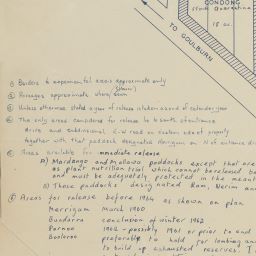 CONDONG
Stock Quarantine
15 ac.
TO GOULBURN
1) Borders to experimental areas approximate only
2) Acreages approximate where shown (shown)
3) Unless otherwise stated a year of release is taken as end of calendar year
4) The only areas considered for release lie to south of entrance
drive and subdivisional E-W road on eastern side of property
together with that paddock designated Merrigum on N of entrance dri
5) Areas available for immediate release
a) Mardango and Mallowa paddocks except that are
as plant nutrition trial which cannot be released be
and must be adequately protected in the meant
b) Those paddocks designated Ram, Nerim and
6) Areas for release before 1964 as shown on plan
Merrigum March 1960
Bundarra conclusion of winter 1962
Parnoo 1962 - possibly 1961 or prior to end
Booleroo preferably to hold for lambing an
to build up exhausted reserves. I